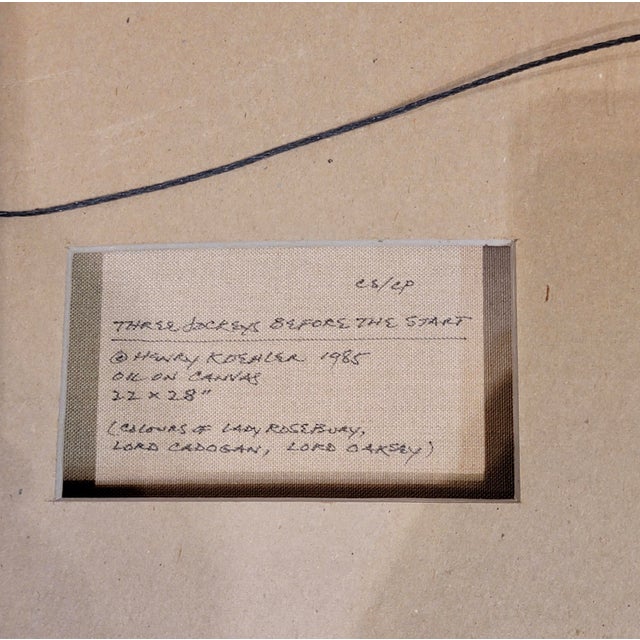 CS/CP
THREE JOCKEYS BEFORE THE START
© HENRY KOEHLER 1985
OIL ON CANVAS
22 x 28"
(COLOURS OF LADY ROSEBURY,
LORD CADOGAN, LORD OAKSEY)